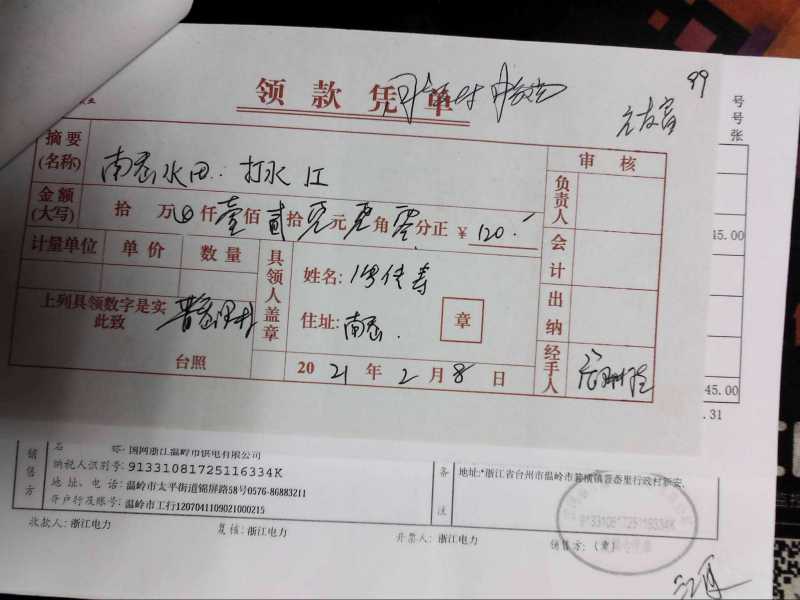 领款凭单
99
号
号
张
摘要
(名称)
南岙水田: 打水 江
审 核
金额
(大写)
拾 万 仟壹佰贰拾零元零角零分正 ¥ 120.
负责人
计量单位 单价 数量
具领人盖章
姓名:
住址: 南岙.
章
会计
45.00
上列具领数字是实
此致
出纳
台照
2021年2月8日
经手人
45.00
.31
销售方
名 称: 国网浙江温岭市供电有限公司
纳税人识别号: 91331081725116334K
地址、电话: 温岭市太平街道锦屏路58号0576-86883211
开户行及账号: 温岭市工行1207041109021000215
备注
地址:*浙江省台州市温岭市箬横镇晋岙里行政村新安.
91331081725116334K
收款人: 浙江电力
复核: 浙江电力
开票人: 浙江电力
销售方: (章)